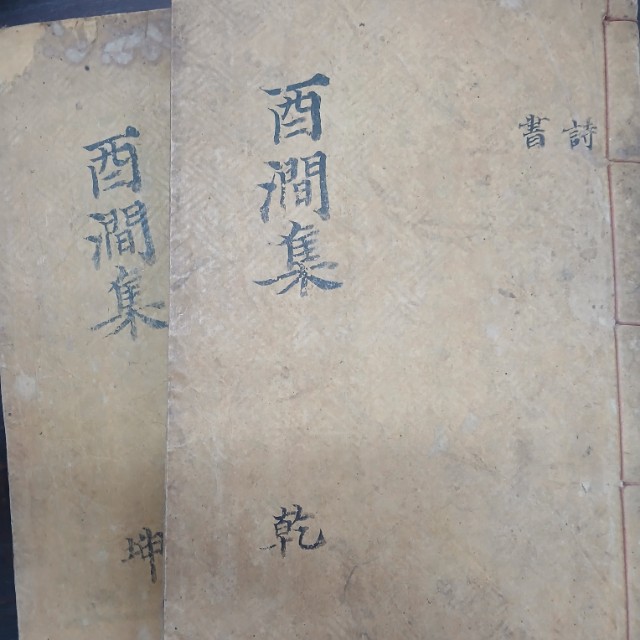 酉澗集
乾
詩
書
酉澗集
坤